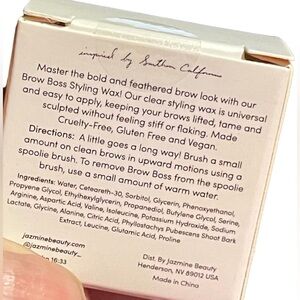 inspired by Southern California
Master the bold and feathered brow look with our
Brow Boss Styling Wax! Our clear styling wax is universal
and easy to apply, keeping your brows lifted, tame and
sculpted without feeling stiff or flaking. Made
Cruelty-Free, Gluten Free and Vegan.
Directions: A little goes a long way! Brush a small
amount on clean brows in upward motions using a
spoolie brush. To remove Brow Boss from the spoolie
brush, use a small amount of warm water.
Ingredients: Water, Ceteareth-30, Sorbitol, Glycerin, Phenoxyethanol,
Propylene Glycol, Ethylhexylglycerin, Propanediol, Butylene Glycol, Serine,
Arginine, Aspartic Acid, Valine, Isoleucine, Potassium Hydroxide, Sodium
Lactate, Glycine, Alanine, Citric Acid, Phyllostachys Pubescens Shoot Bark
Extract, Leucine, Glutamic Acid, Proline
jazminebeauty.com
@jazminebeauty_
16:33
Dist. By Jazmine Beauty
Henderson, NV 89012 USA
Made in China